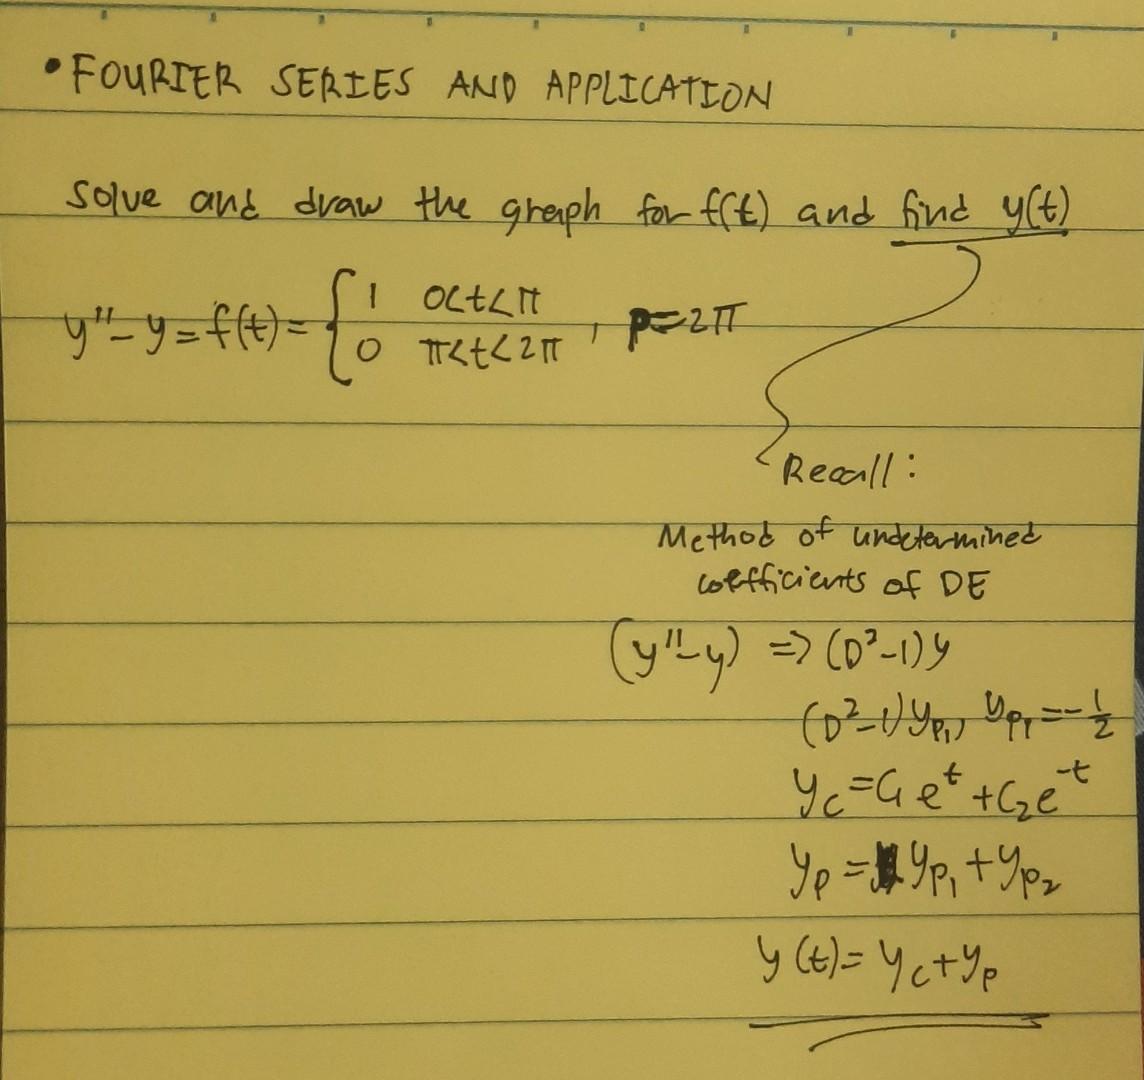 • FOURIER SERIES AND APPLICATION
Solve and draw the graph for f(t) and find y(t)
y'' - y = f(t) = { 1 0<t<π
0 π<t<2π , p=2π
Recall:
Method of undetermined
coefficients of DE
(y''-y) => (D²-1)y
(D²-1)yp₁, yp₁ = -1/2
yc = C₁e^t + C₂e^-t
yp = yp₁ + yp₂
y(t) = yc + yp